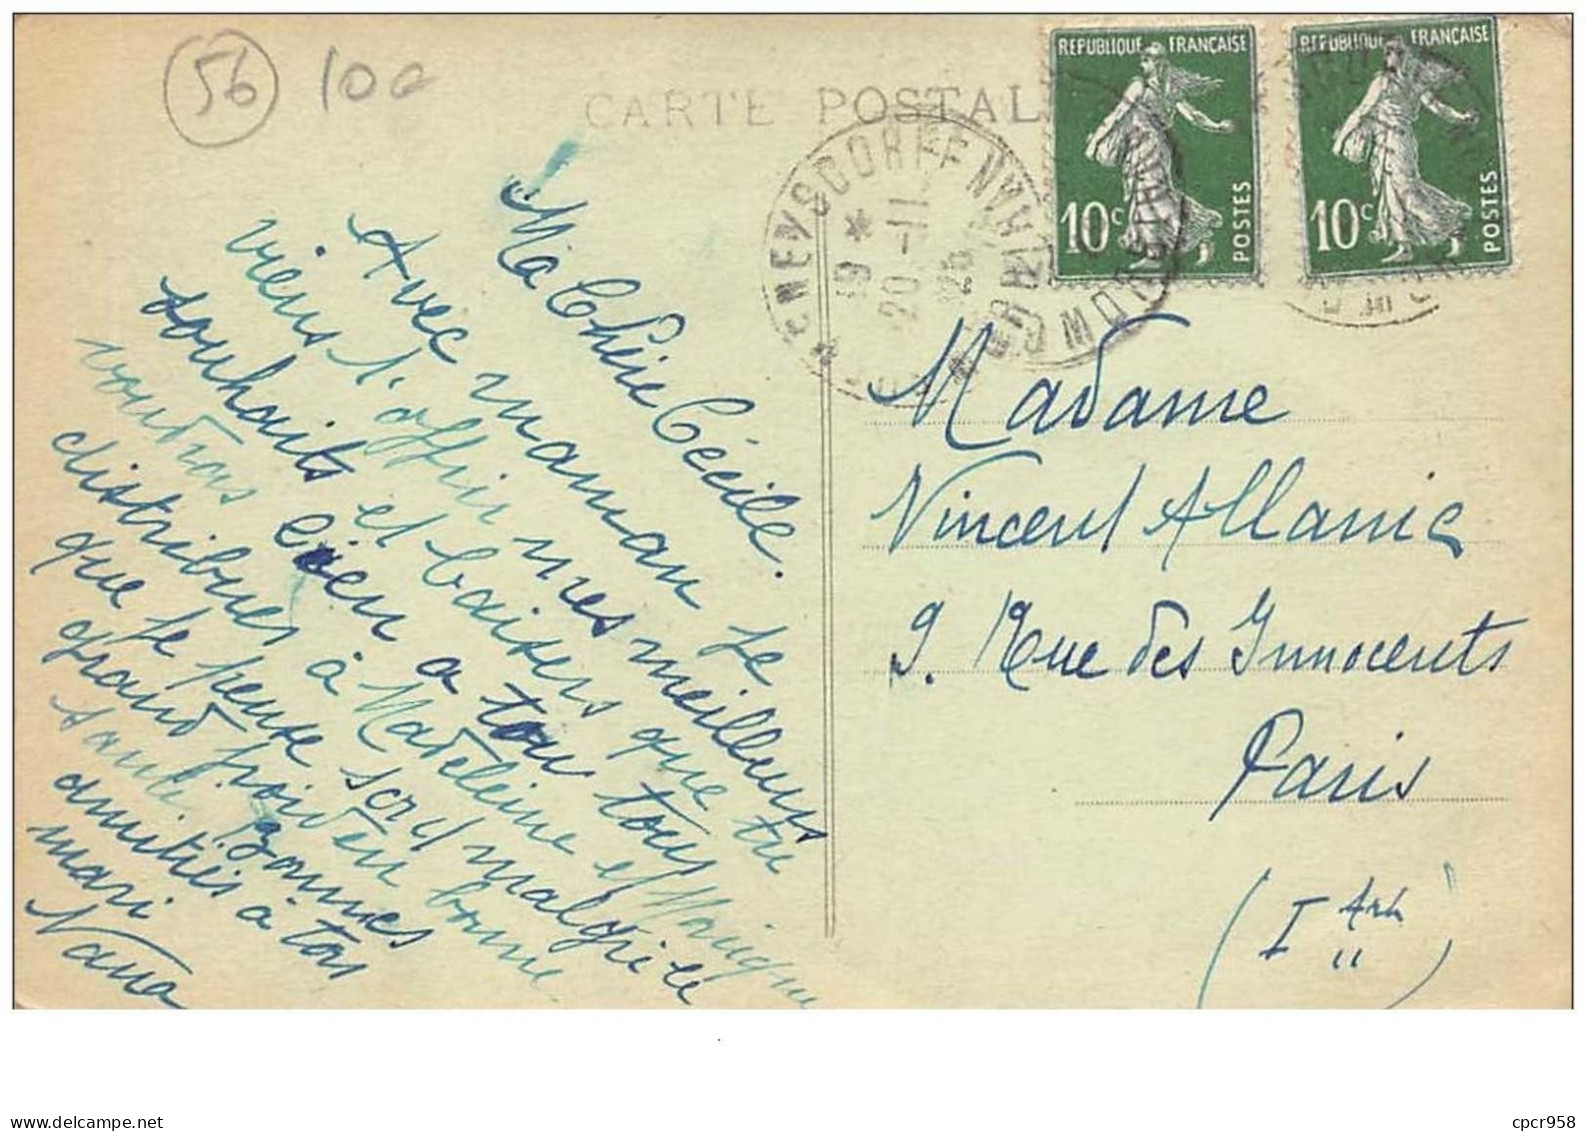 56 10c
CARTE POSTAL
REPUBLIQUE FRANÇAISE
10c POSTES
REPUBLIQUE FRANÇAISE
10c POSTES
19 *
20-11
Ma Chère Cécile.
Avec maman je
viens t'offrir mes meilleurs
souhaits et baisers que tu
voudras bien a ton tour
distribuer à Madeleine et Monique
que je pense sont malgré le
grand froid en bonne
santé. Bonnes
amitiés à ton
mari
Nana
Madame
Vincent Allanic
9. Rue des Innocents
Paris
(I Arrt)
cpcr958